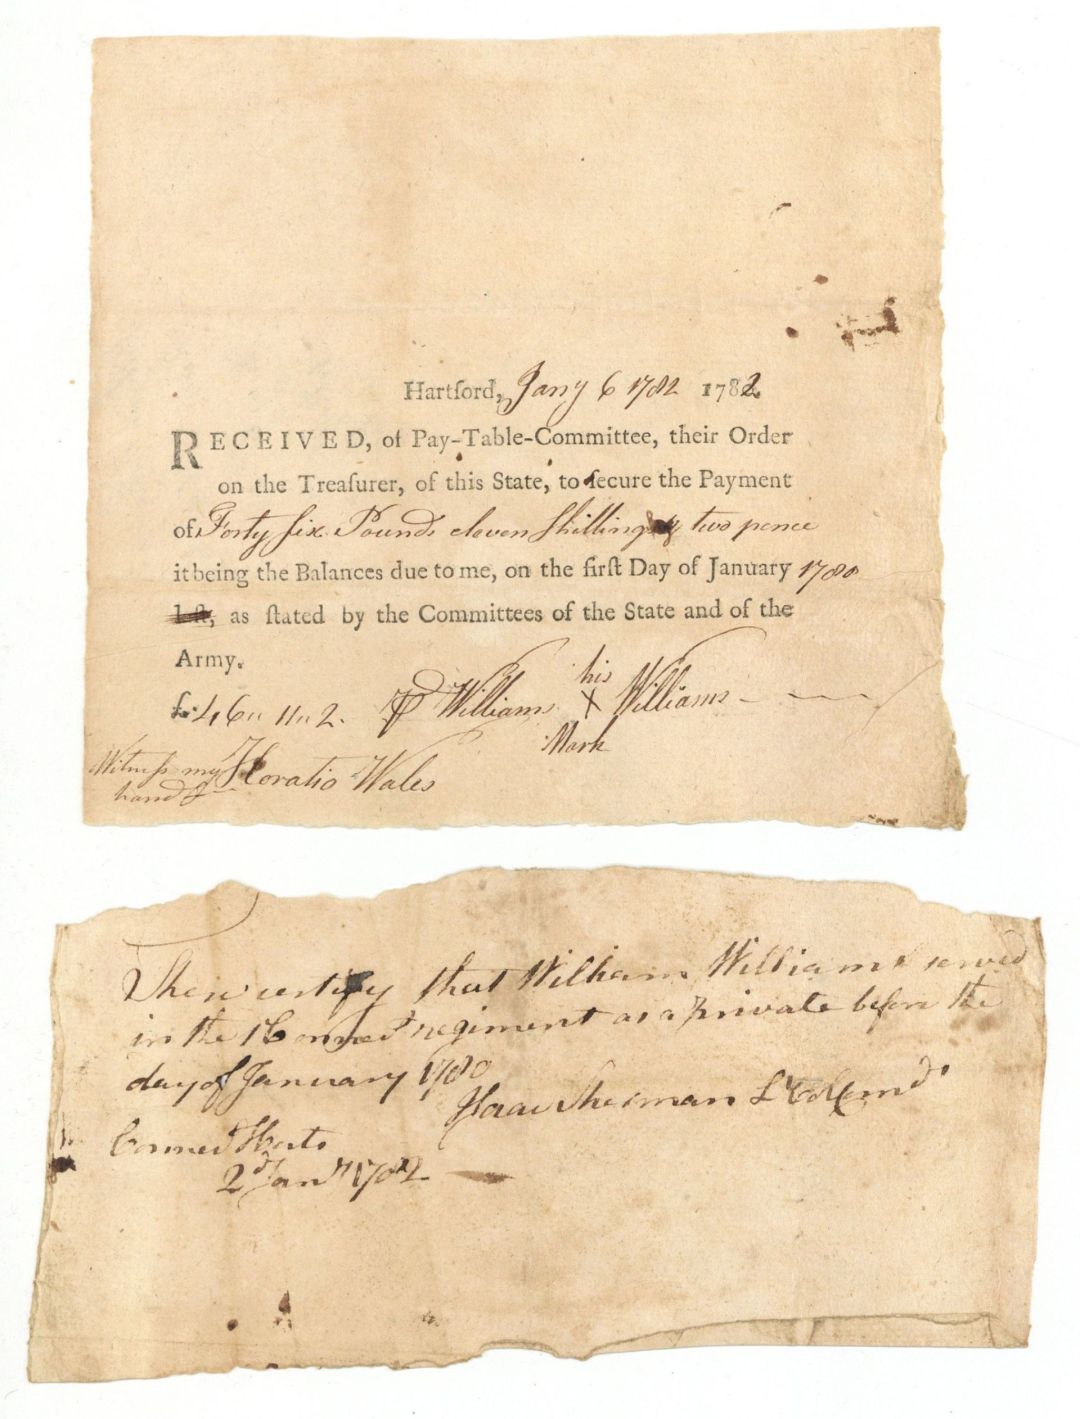 Hartford, Jany 6 1782 1782
RECEIVED, of Pay-Table-Committee, their Order
on the Treaſurer, of this State, to ſecure the Payment
of Forty ſix Pounds eleven Shillings & two pence
it being the Balances due to me, on the firſt Day of January 1780
laſt, as ſtated by the Committees of the State and of the
Army.
£.46 11 2. Williams his X Williams
Mark
Witneſs my Horatio Wales
hand
certify that William Williams served
in the Connect regiment as a private before the
day of January 1780
Isaac Sherman Lt Col Comdt
Connect Huts
2d Jany 1782